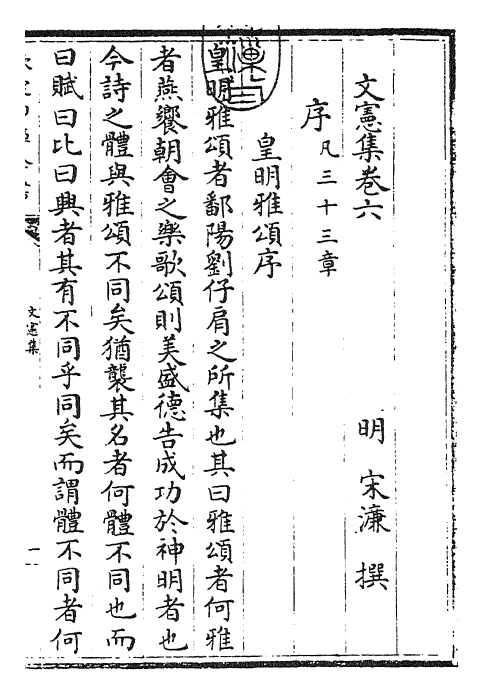 文憲集卷六
明 宋濂 撰
序凡三十三章
皇明雅頌序
皇明雅頌者鄱陽劉仔肩之所集也其曰雅頌者何雅
者燕饗朝會之樂歌頌則美盛德告成功於神明者也
今詩之體與雅頌不同矣猶襲其名者何體不同也而
曰賦曰比曰興者其有不同乎同矣而謂體不同者何
文憲集
一